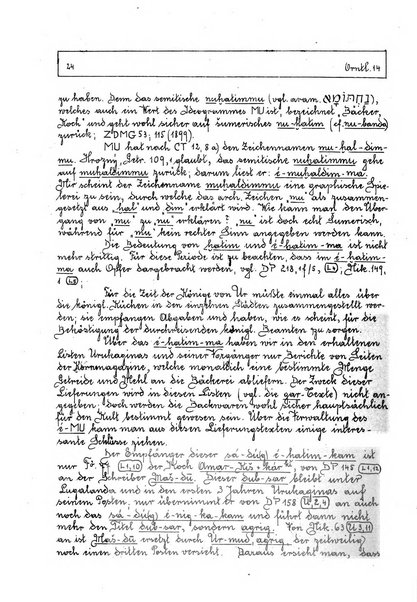 24 Orntl. 14
zu haben. Denn das semitische nuhatimmu (vgl. aram. נחתומא),
welches auch ein Wert des Ideogrammes MU ist, bezeichnet „Bäcker,
Koch" und geht wohl sicher auf sumerisches nu-hatim (cf. nu-banda)
zurück; ZDMG 53; 115 (1899).
MU hat noch CT 12, 8 a) den Zeichennamen mu-hal-dim-
mu. Hrozny, Getr. 109, 1 glaubt, das semitische nuhatimmu gehe
auf muhaldimmu zurück; darum liest er: é-muhaldim-ma.
Mir scheint der Zeichenname muhaldimmu eine graphische Spie-
lerei zu sein, durch welche das arch. Zeichen „mu" als zusammen-
gesetzt aus „hal" und „dim" erklärt wird. Wie kann man den Über-
gang von „mu" zu „nu" erklären? „nu" ist doch echt Sumerisch,
während für „mu" kein rechter Sinn angegeben werden kann.
Die Bedeutung von hatim und é-hatim-ma ist nicht
mehr strittig. Für diese Periode ist zu beachten, dass im é-hatim-
ma auch Opfer dargebracht werden, vgl. DP 218, 17/5, Nik. 149,
Für die Zeit der Könige von Ur müßte einmal alles über
die königl. Küchen in den einzelnen Städten zusammengestellt wer-
den; sie empfangen Abgaben und haben, wie es scheint, für die
Beköstigung der durchreisenden königl. Beamten zu sorgen.
Über das é-hatim-ma haben wir in den erhaltenen
Listen Urukaginas und seiner Vorgänger nur Berichte von Seiten
der Kornmagazine, welche monatlich eine bestimmte Menge
Getreide und Mehl an die Bäckerei abliefern. Der Zweck dieser
Lieferungen wird in diesen Listen (vgl. die gar-Texte) nicht an-
gegeben, doch werden die Backwaren wohl sicher hauptsächlich
für den Kult bestimmt gewesen sein. Über die Verwaltung des
é-MU kann man aus diesen Lieferungstexten einige interes-
sante Schlüsse ziehen.
Der Empfänger dieser sá-du₍g₎ é-hatim-kam ist
nur L 1, 10 der Koch Amar- von DP 148 L 1, 12
an der Schreiber Maš-dù. Dieser dub-sar bleibt unter
Lugalanda und in den ersten 3 Jahren Urukaginas auf
seinem Posten, nur übernimmt er von DP 158 U 2, 4 an auch
noch das sá-du₍g₎ é-nig-ka-kam und führt dann nicht
mehr den Titel dub-sar, sondern agrig. Von Nik. 63 U 3, 11
an ist Maš-dù ersetzt durch Ur-mud agrig, der zeitweilig
noch einen dritten Posten versieht. Daraus ersieht man, dass